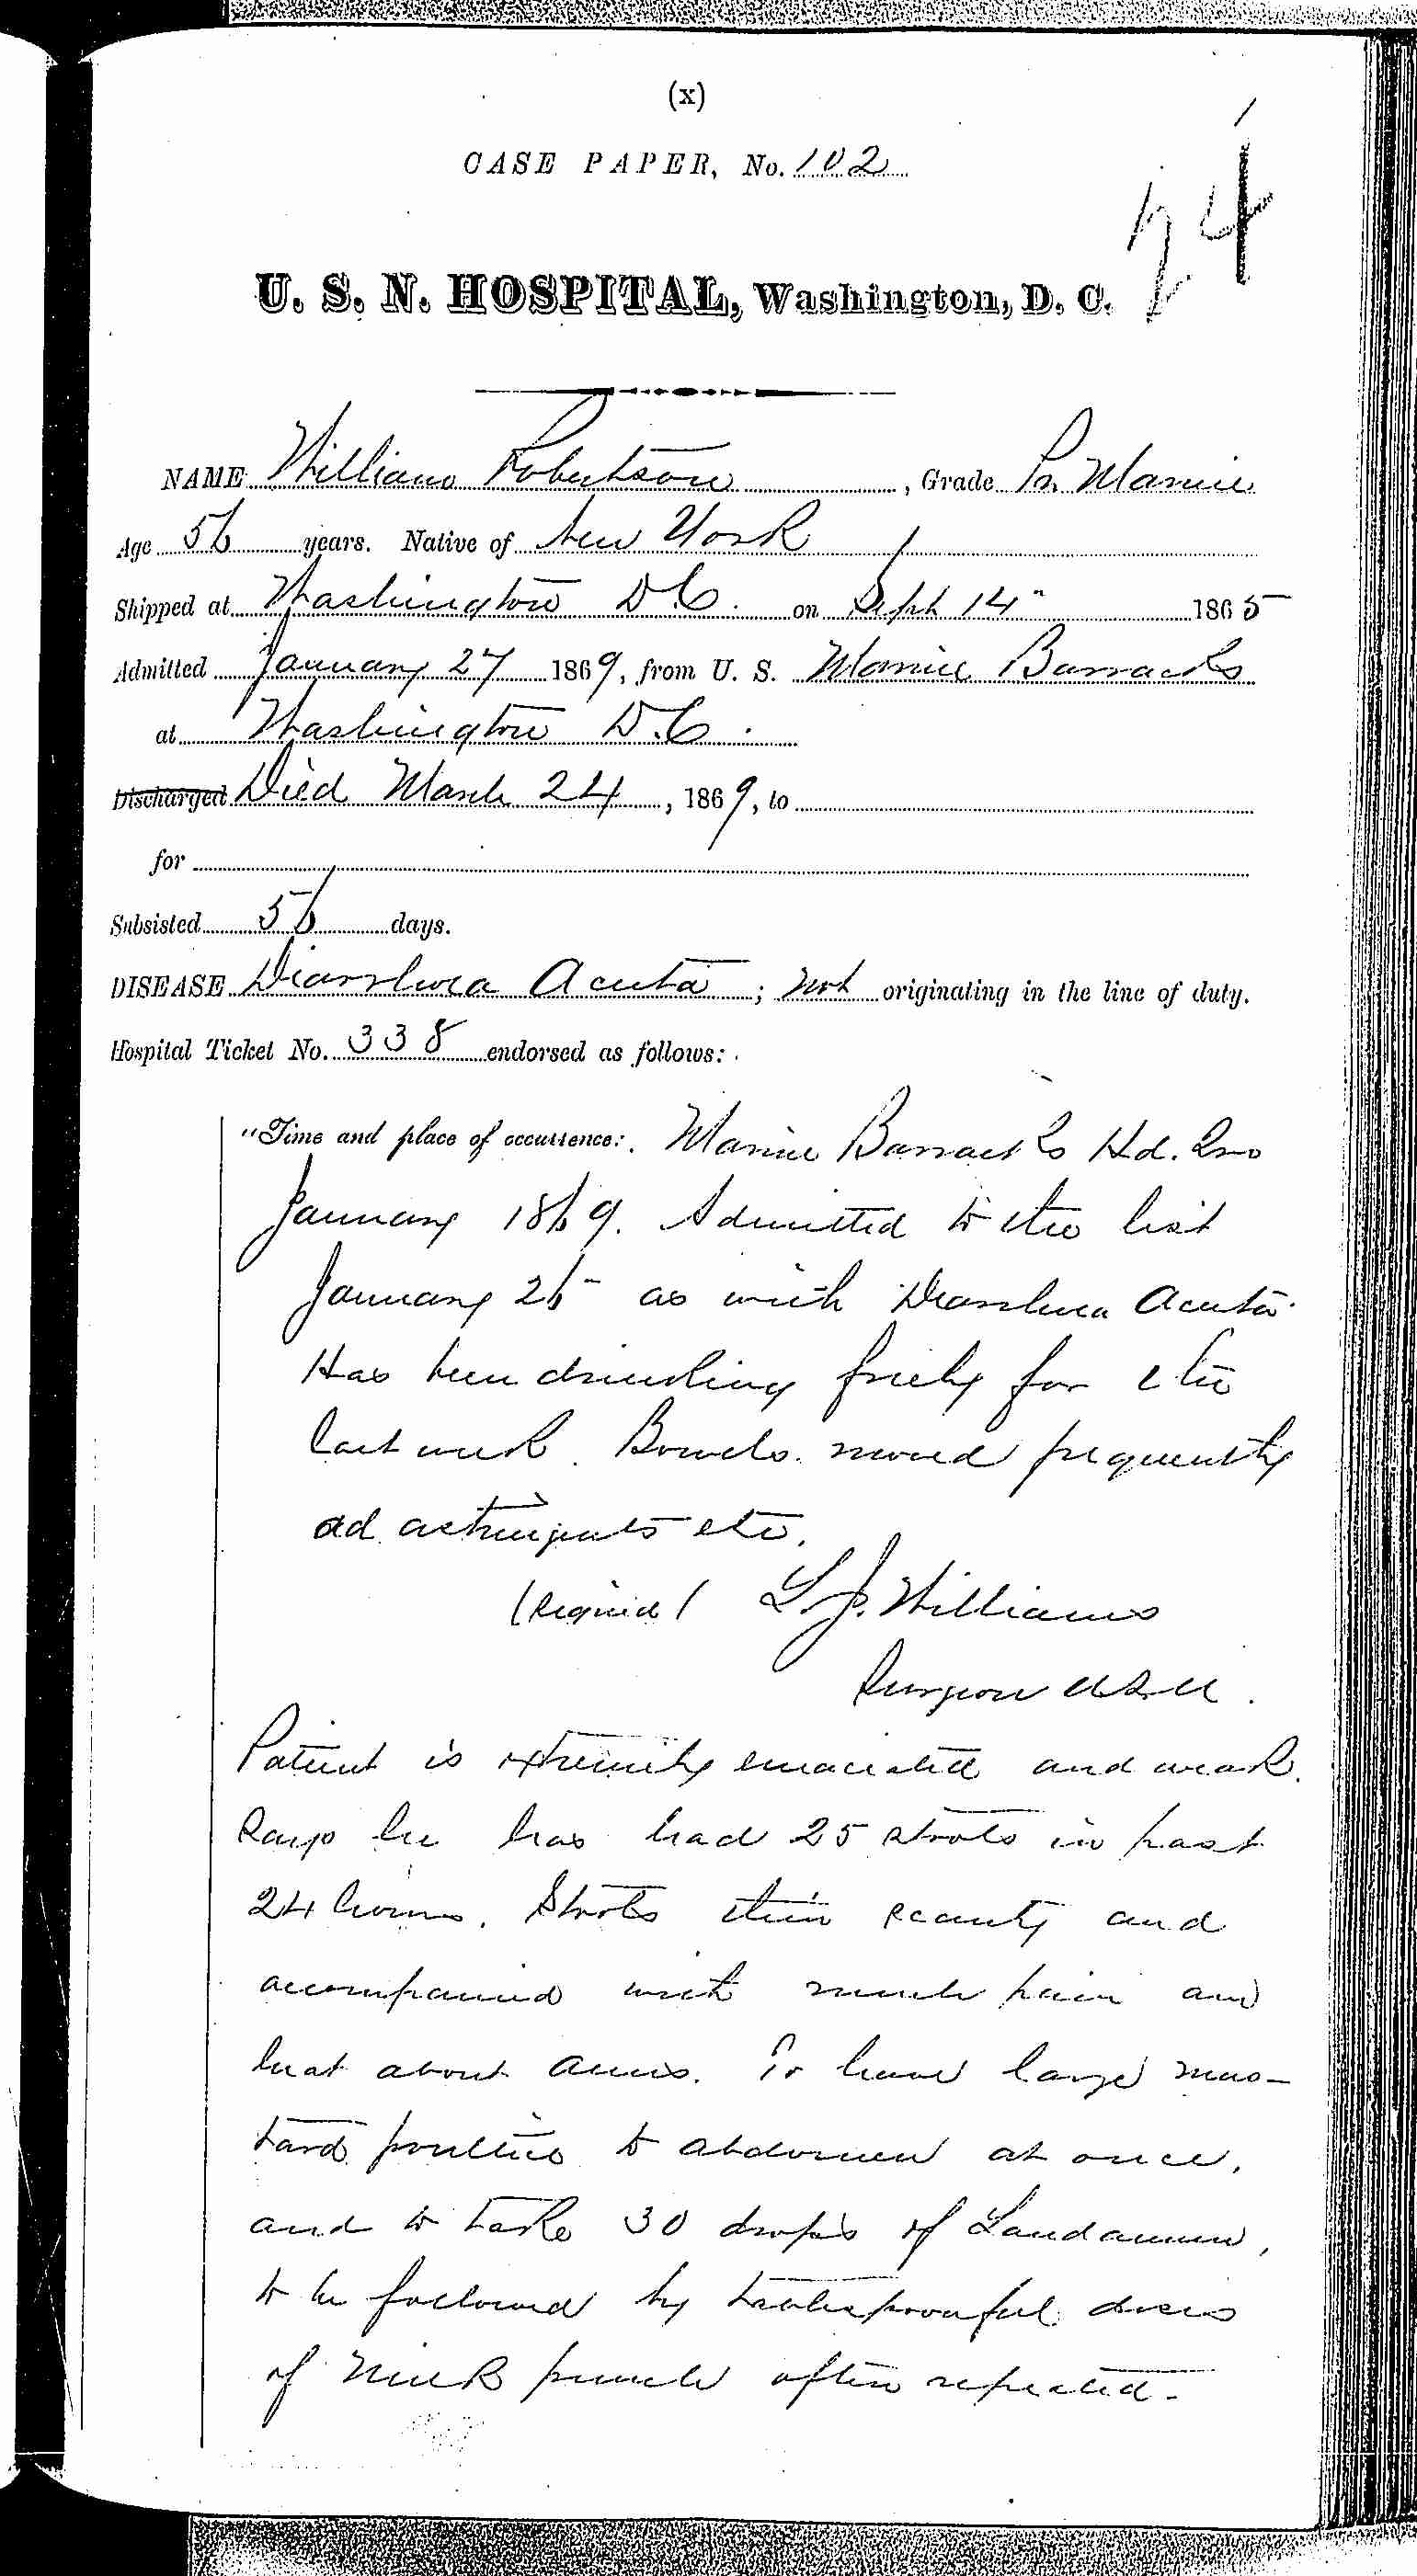 (x)
CASE PAPER, No. 102
74
U. S. N. HOSPITAL, Washington, D. C.
NAME William Robertson, Grade Pr. Marine
Age 56 years. Native of New York
Shipped at Washington D.C. on Sept 14" 1865
Admitted January 27 1869, from U. S. Marine Barracks
at Washington D.C.
Discharged Died March 24, 1869, to
for
Subsisted 56 days.
DISEASE Diarrhoea Acuta; not originating in the line of duty.
Hospital Ticket No. 338 endorsed as follows:
"Time and place of occurrence: Marine Barracks Hd. Qrs
January 1869. Admitted to the list
January 26 as with Diarrhoea Acuta.
Has been drinking freely for the
last week. Bowels moved frequently
ad astringents etc.
(Signed) L. J. Williams
Surgeon U.S.N.
Patient is extremely emaciated and weak.
Says he has had 25 stools in past
24 hours. Stools thin scanty and
accompanied with much pain and
heat about anus. To have large mus-
tard poultice to abdomen at once,
and to take 30 drops of Laudanum,
to be followed by tablespoonful doses
of milk punch often repeated.